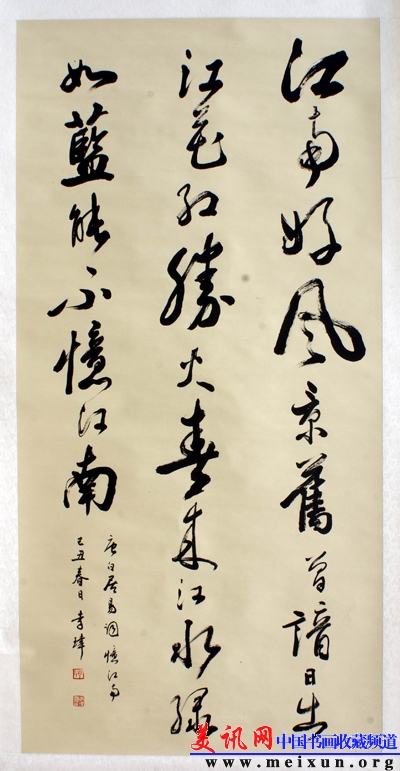 江南好风景旧曾谙日出
江花红胜火春来江水绿
如藍能不憶江南
唐白居易词憶江南
己丑春日李瑋
美讯网 中国书画收藏频道
www.meixun.org